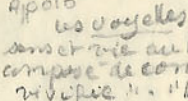 Appolo
les voyelles
sens et vie au
composé de con
vivifie " . "